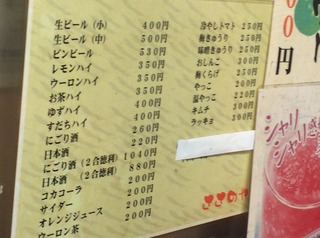 生ビール (小) 400円
生ビール (中) 500円
ビンビール 530円
レモンハイ 350円
ウーロンハイ 350円
お茶ハイ 350円
ゆずハイ 400円
すだちハイ 400円
にごり酒 260円
日本酒 220円
にごり酒 (2合徳利) 1040円
日本酒 (2合徳利) 880円
コカコーラ 200円
サイダー 200円
オレンジジュース 200円
ウーロン茶 200円
冷やしトマト 250円
梅きゅうり 250円
味噌きゅうり 250円
おしんこ 300円
梅くらげ 250円
やっこ 200円
温やっこ 220円
キムチ 300円
ラッキョ 300円
円
シャリ
シャリ感